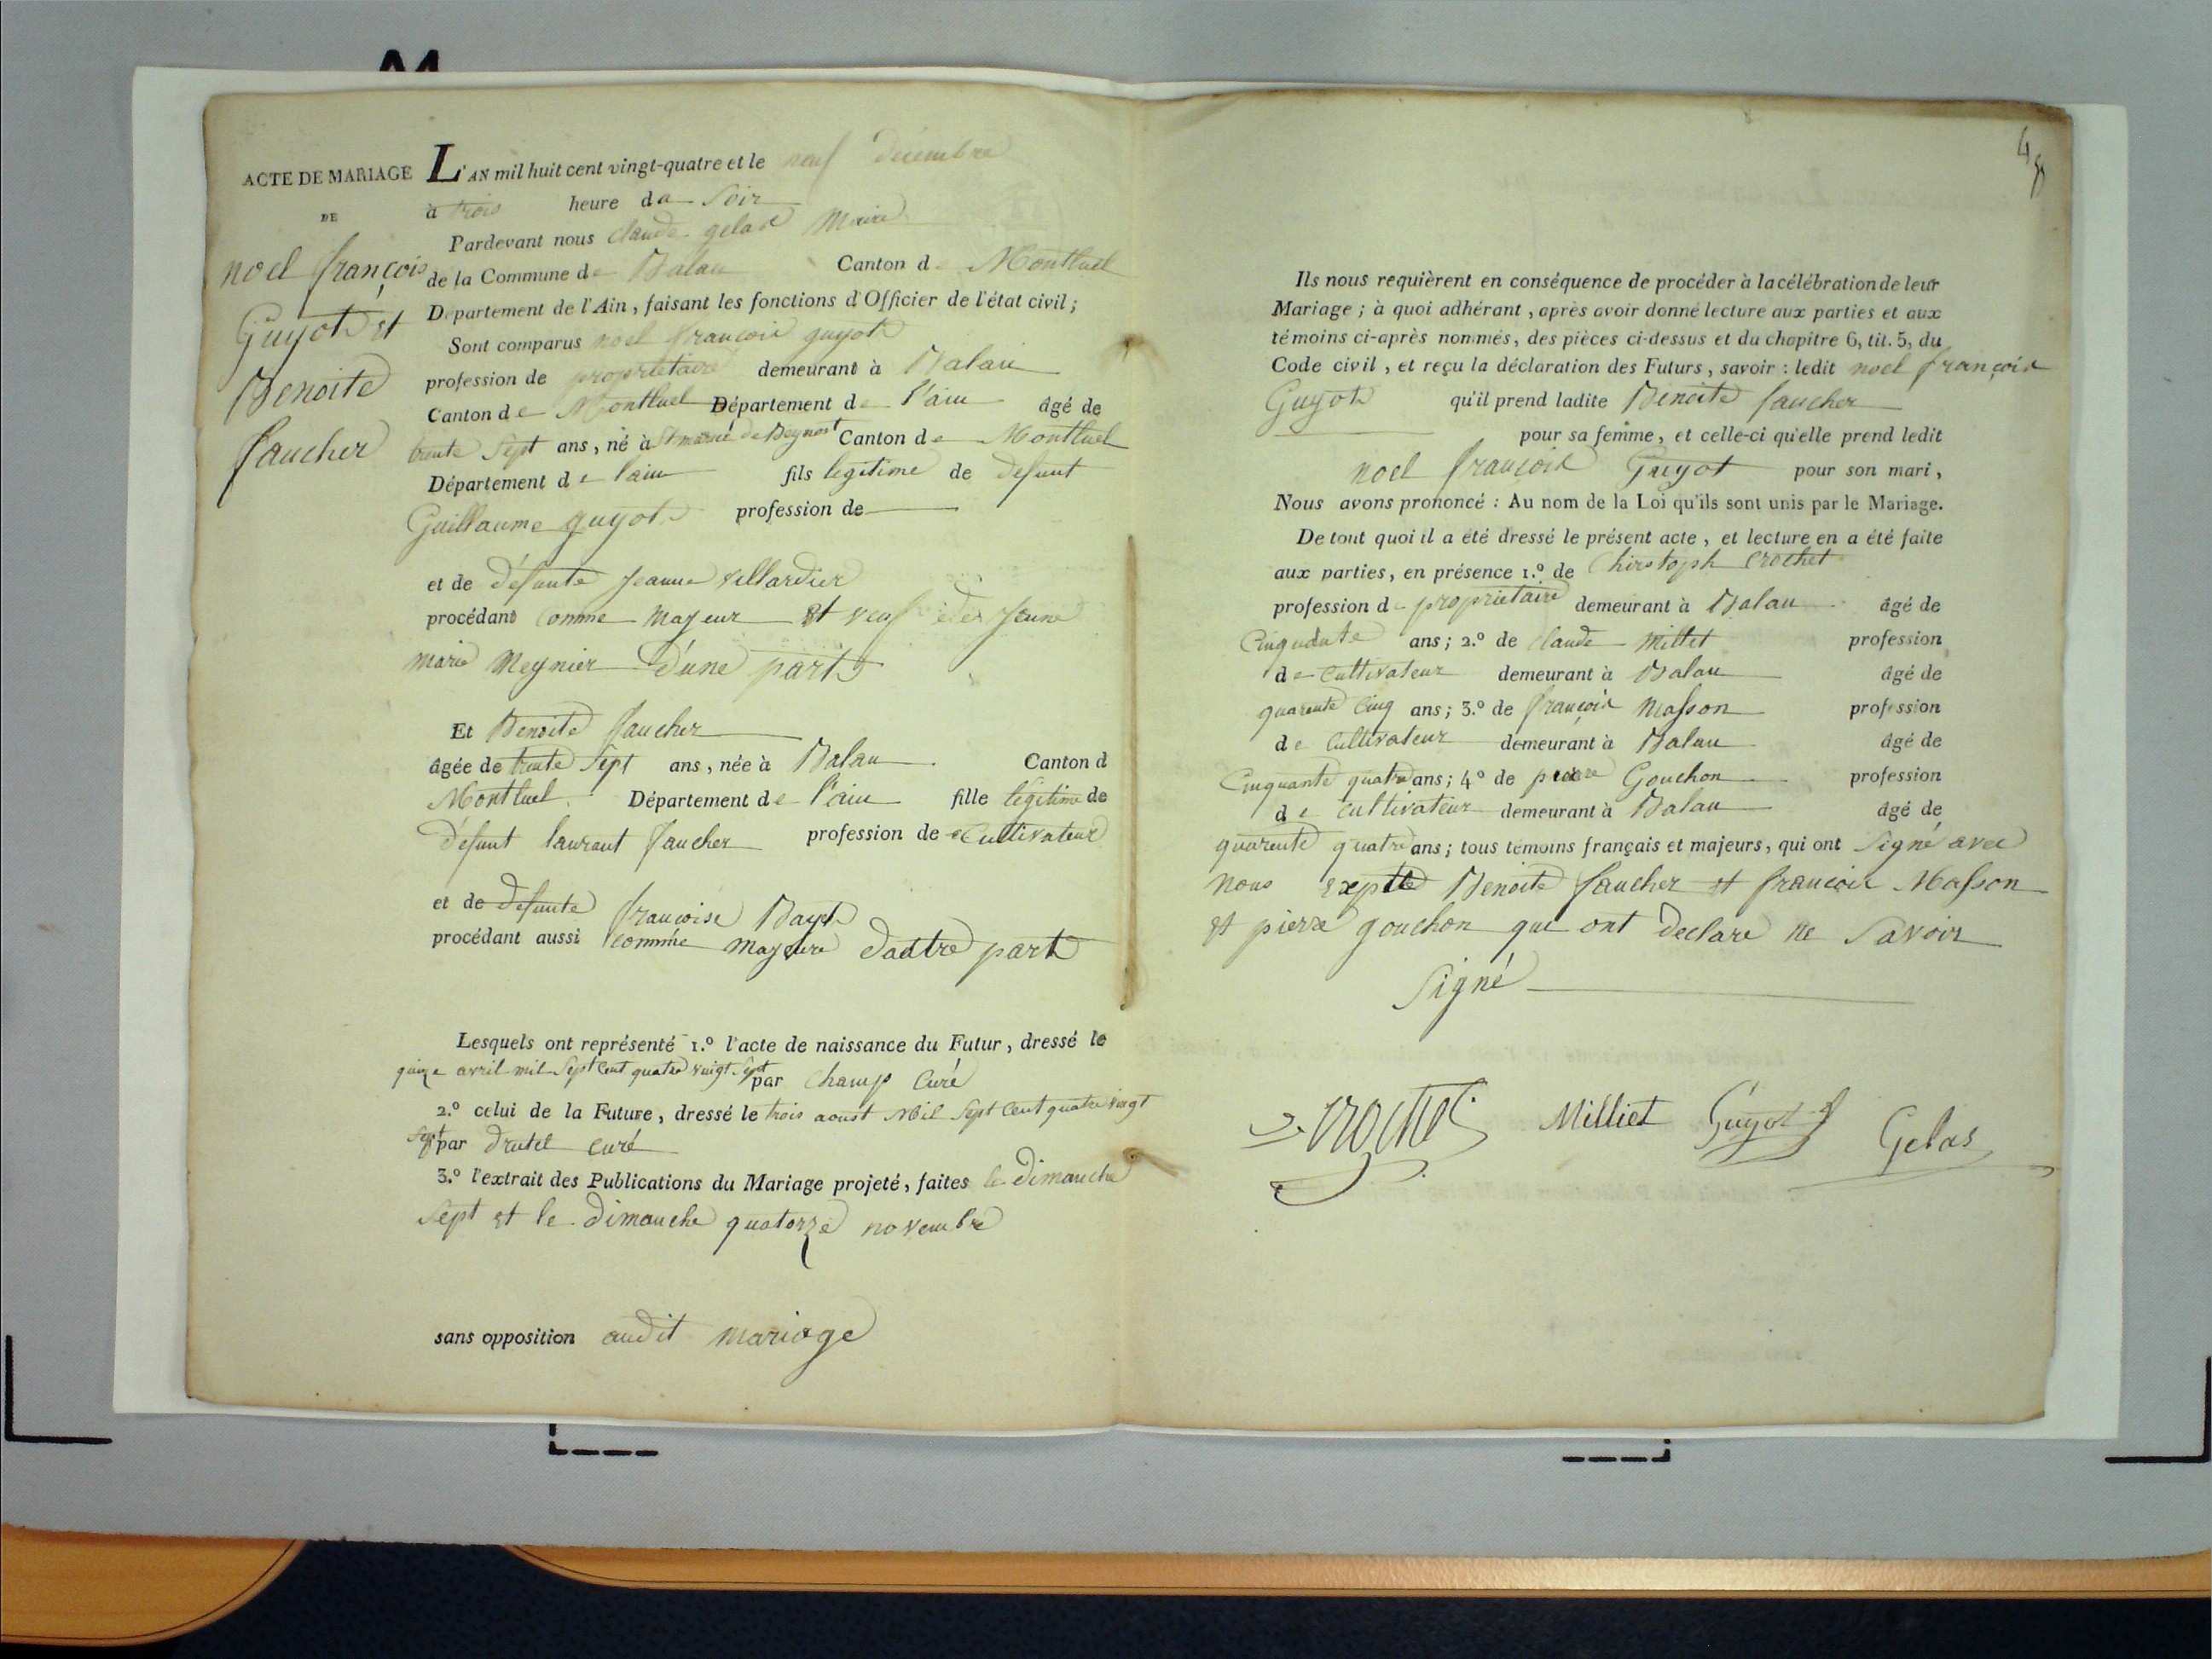 ACTE DE MARIAGE
DE
noel françois
Guyot et
Benoite
faucher
L'AN mil huit cent vingt-quatre et le neuf décembre
à trois heure du Soir
Pardevant nous claude gelas Maire
de la Commune de Balan Canton d Montluel
Département de l'Ain, faisant les fonctions d'Officier de l'état civil;
Sont comparus noel francois guyot
profession de propriétaire demeurant à Balan
Canton de Montluel Département de l'ain âgé de
trente Sept ans, né à St maurice de Beynost Canton de Montluel
Département de l'ain fils legitime de defunt
Guillaume guyot profession de
et de défunte Jeanne villardier
procédant comme majeur et veuf de Jeune
marie meynier d'une part
Et Benoite faucher
âgée de trente Sept ans, née à Balan Canton d
Montluel Département de l'ain fille légitime de
défunt laurant faucher profession de Cultivateur
et de defunte francoise
procédant aussi comme majeure dautre part
Lesquels ont représenté 1.º l'acte de naissance du Futur, dressé le
quinze avril mil Sept cent quatre vingt Sept par champ Curé
2.º celui de la Future, dressé le trois aoust Mil Sept Cent quatre vingt
Sept par drutel curé
3.º l'extrait des Publications du Mariage projeté, faites le dimanche
Sept et le dimanche quatorze novembre
sans opposition audit mariage
48
Ils nous requièrent en conséquence de procéder à la célébration de leur
Mariage; à quoi adhérant, après avoir donné lecture aux parties et aux
témoins ci-après nommés, des pièces ci-dessus et du chapitre 6, tit. 5, du
Code civil, et reçu la déclaration des Futurs, savoir: ledit noel françois
Guyot qu'il prend ladite Benoite faucher
pour sa femme, et celle-ci qu'elle prend ledit
noel françois Guyot pour son mari,
Nous avons prononcé: Au nom de la Loi qu'ils sont unis par le Mariage.
De tout quoi il a été dressé le présent acte, et lecture en a été faite
aux parties, en présence 1.º de Chirstoph Crochet
profession de proprietaire demeurant à Balan âgé de
Cinquante ans; 2.º de claude millet profession
de Cultivateur demeurant à Balan âgé de
quarente Cinq ans; 3.º de françois Masson profession
de Cultivateur demeurant à Balan âgé de
Cinquante quatre ans; 4º de pierre Gouchon profession
de cultivateur demeurant à Balan âgé de
quarente quatre ans; tous témoins français et majeurs, qui ont Signé avec
nous Benoite faucher et francois Masson
et pierre gouchon qui ont declare ne Savoir
Signé
Crochet Milliet Guyot Gelas